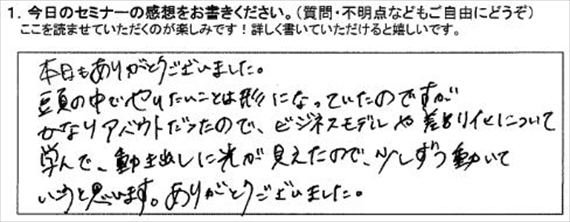 1. 今日のセミナーの感想をお書きください。(質問・不明点などもご自由にどうぞ)
ここを読ませていただくのが楽しみです！詳しく書いていただけると嬉しいです。
本日もありがとうございました。
頭の中でやりたいことは形になっていたのですが
かなりアバウトだったので、ビジネスモデルや差別化について
学んで、動き出しに光が見えたので、少しずつ動いて
いこうと思います。ありがとうございました。